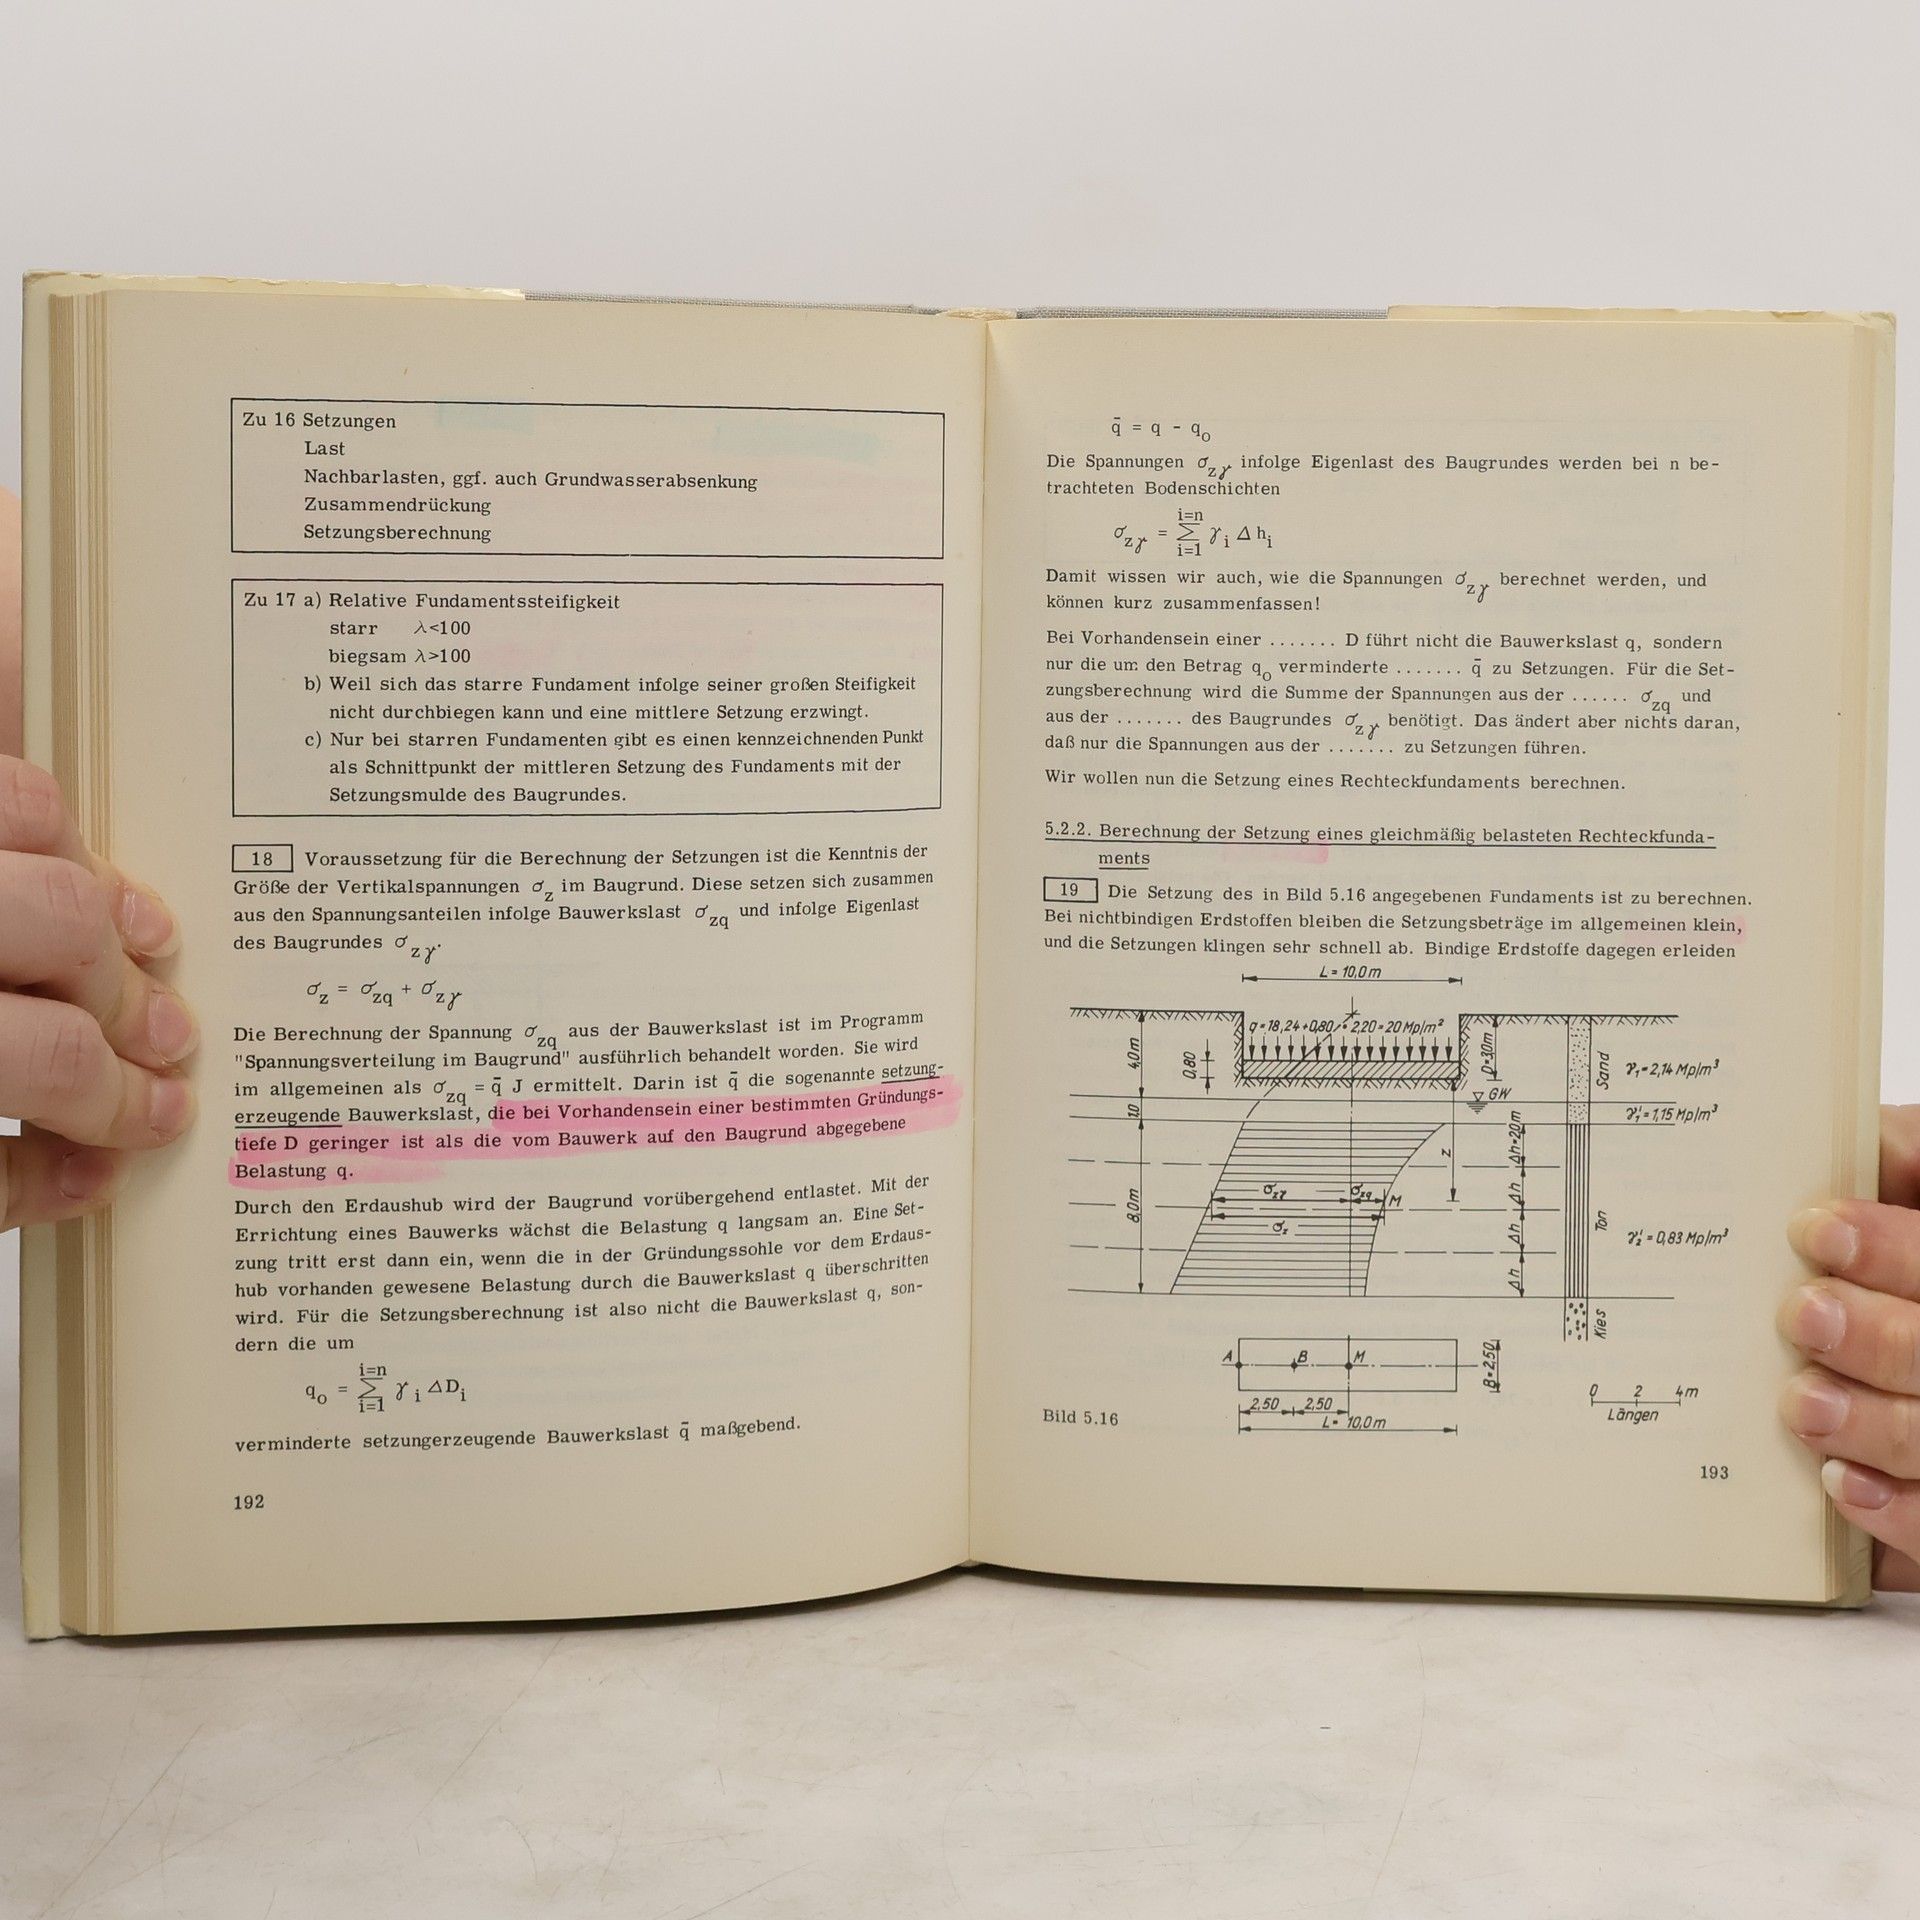 Zu 16 Setzungen
Last
Nachbarlasten, ggf. auch Grundwasserabsenkung
Zusammendrückung
Setzungsberechnung
Zu 17 a) Relative Fundamentssteifigkeit
starr λ<100
biegsam λ>100
b) Weil sich das starre Fundament infolge seiner großen Steifigkeit
nicht durchbiegen kann und eine mittlere Setzung erzwingt.
c) Nur bei starren Fundamenten gibt es einen kennzeichnenden Punkt
als Schnittpunkt der mittleren Setzung des Fundaments mit der
Setzungsmulde des Baugrundes.
18 Voraussetzung für die Berechnung der Setzungen ist die Kenntnis der
Größe der Vertikalspannungen σz im Baugrund. Diese setzen sich zusammen
aus den Spannungsanteilen infolge Bauwerkslast σzq und infolge Eigenlast
des Baugrundes σzγ.
σz = σzq + σzγ
Die Berechnung der Spannung σzq aus der Bauwerkslast ist im Programm
"Spannungsverteilung im Baugrund" ausführlich behandelt worden. Sie wird
im allgemeinen als σzq = q̄ J ermittelt. Darin ist q̄ die sogenannte setzung-
erzeugende Bauwerkslast, die bei Vorhandensein einer bestimmten Gründungs-
tiefe D geringer ist als die vom Bauwerk auf den Baugrund abgegebene
Belastung q.
Durch den Erdaushub wird der Baugrund vorübergehend entlastet. Mit der
Errichtung eines Bauwerks wächst die Belastung q langsam an. Eine Set-
zung tritt erst dann ein, wenn die in der Gründungssohle vor dem Erdaus-
hub vorhanden gewesene Belastung durch die Bauwerkslast q überschritten
wird. Für die Setzungsberechnung ist also nicht die Bauwerkslast q, son-
dern die um
i=n
qo = Σ γi ΔDi
i=1
verminderte setzungerzeugende Bauwerkslast q̄ maßgebend.
192
q̄ = q - qo
Die Spannungen σzγ infolge Eigenlast des Baugrundes werden bei n be-
trachteten Bodenschichten
i=n
σzγ = Σ γi Δhi
i=1
Damit wissen wir auch, wie die Spannungen σzγ berechnet werden, und
können kurz zusammenfassen!
Bei Vorhandensein einer ....... D führt nicht die Bauwerkslast q, sondern
nur die um den Betrag qo verminderte ....... q̄ zu Setzungen. Für die Set-
zungsberechnung wird die Summe der Spannungen aus der ...... σzq und
aus der ....... des Baugrundes σzγ benötigt. Das ändert aber nichts daran,
daß nur die Spannungen aus der ....... zu Setzungen führen.
Wir wollen nun die Setzung eines Rechteckfundaments berechnen.
5.2.2. Berechnung der Setzung eines gleichmäßig belasteten Rechteckfunda-
ments
19 Die Setzung des in Bild 5.16 angegebenen Fundaments ist zu berechnen.
Bei nichtbindigen Erdstoffen bleiben die Setzungsbeträge im allgemeinen klein,
und die Setzungen klingen sehr schnell ab. Bindige Erdstoffe dagegen erleiden
L = 10,0m
q=18,24+0,80 · 2,20=20 Mp/m²
4,0m
0,80
D=3,0m
Sand
γ1=2,14 Mp/m³
GW
1,0
γ'1=1,15 Mp/m³
Δh=2,0m
z
σzγ
σzq
M
Δh
8,0m
σz
Δh
Ton
γ'2=0,83 Mp/m³
Δh
Kies
A
B
M
B=2,50
2,50
2,50
L= 10,0m
0 2 4m
Längen
Bild 5.16
193